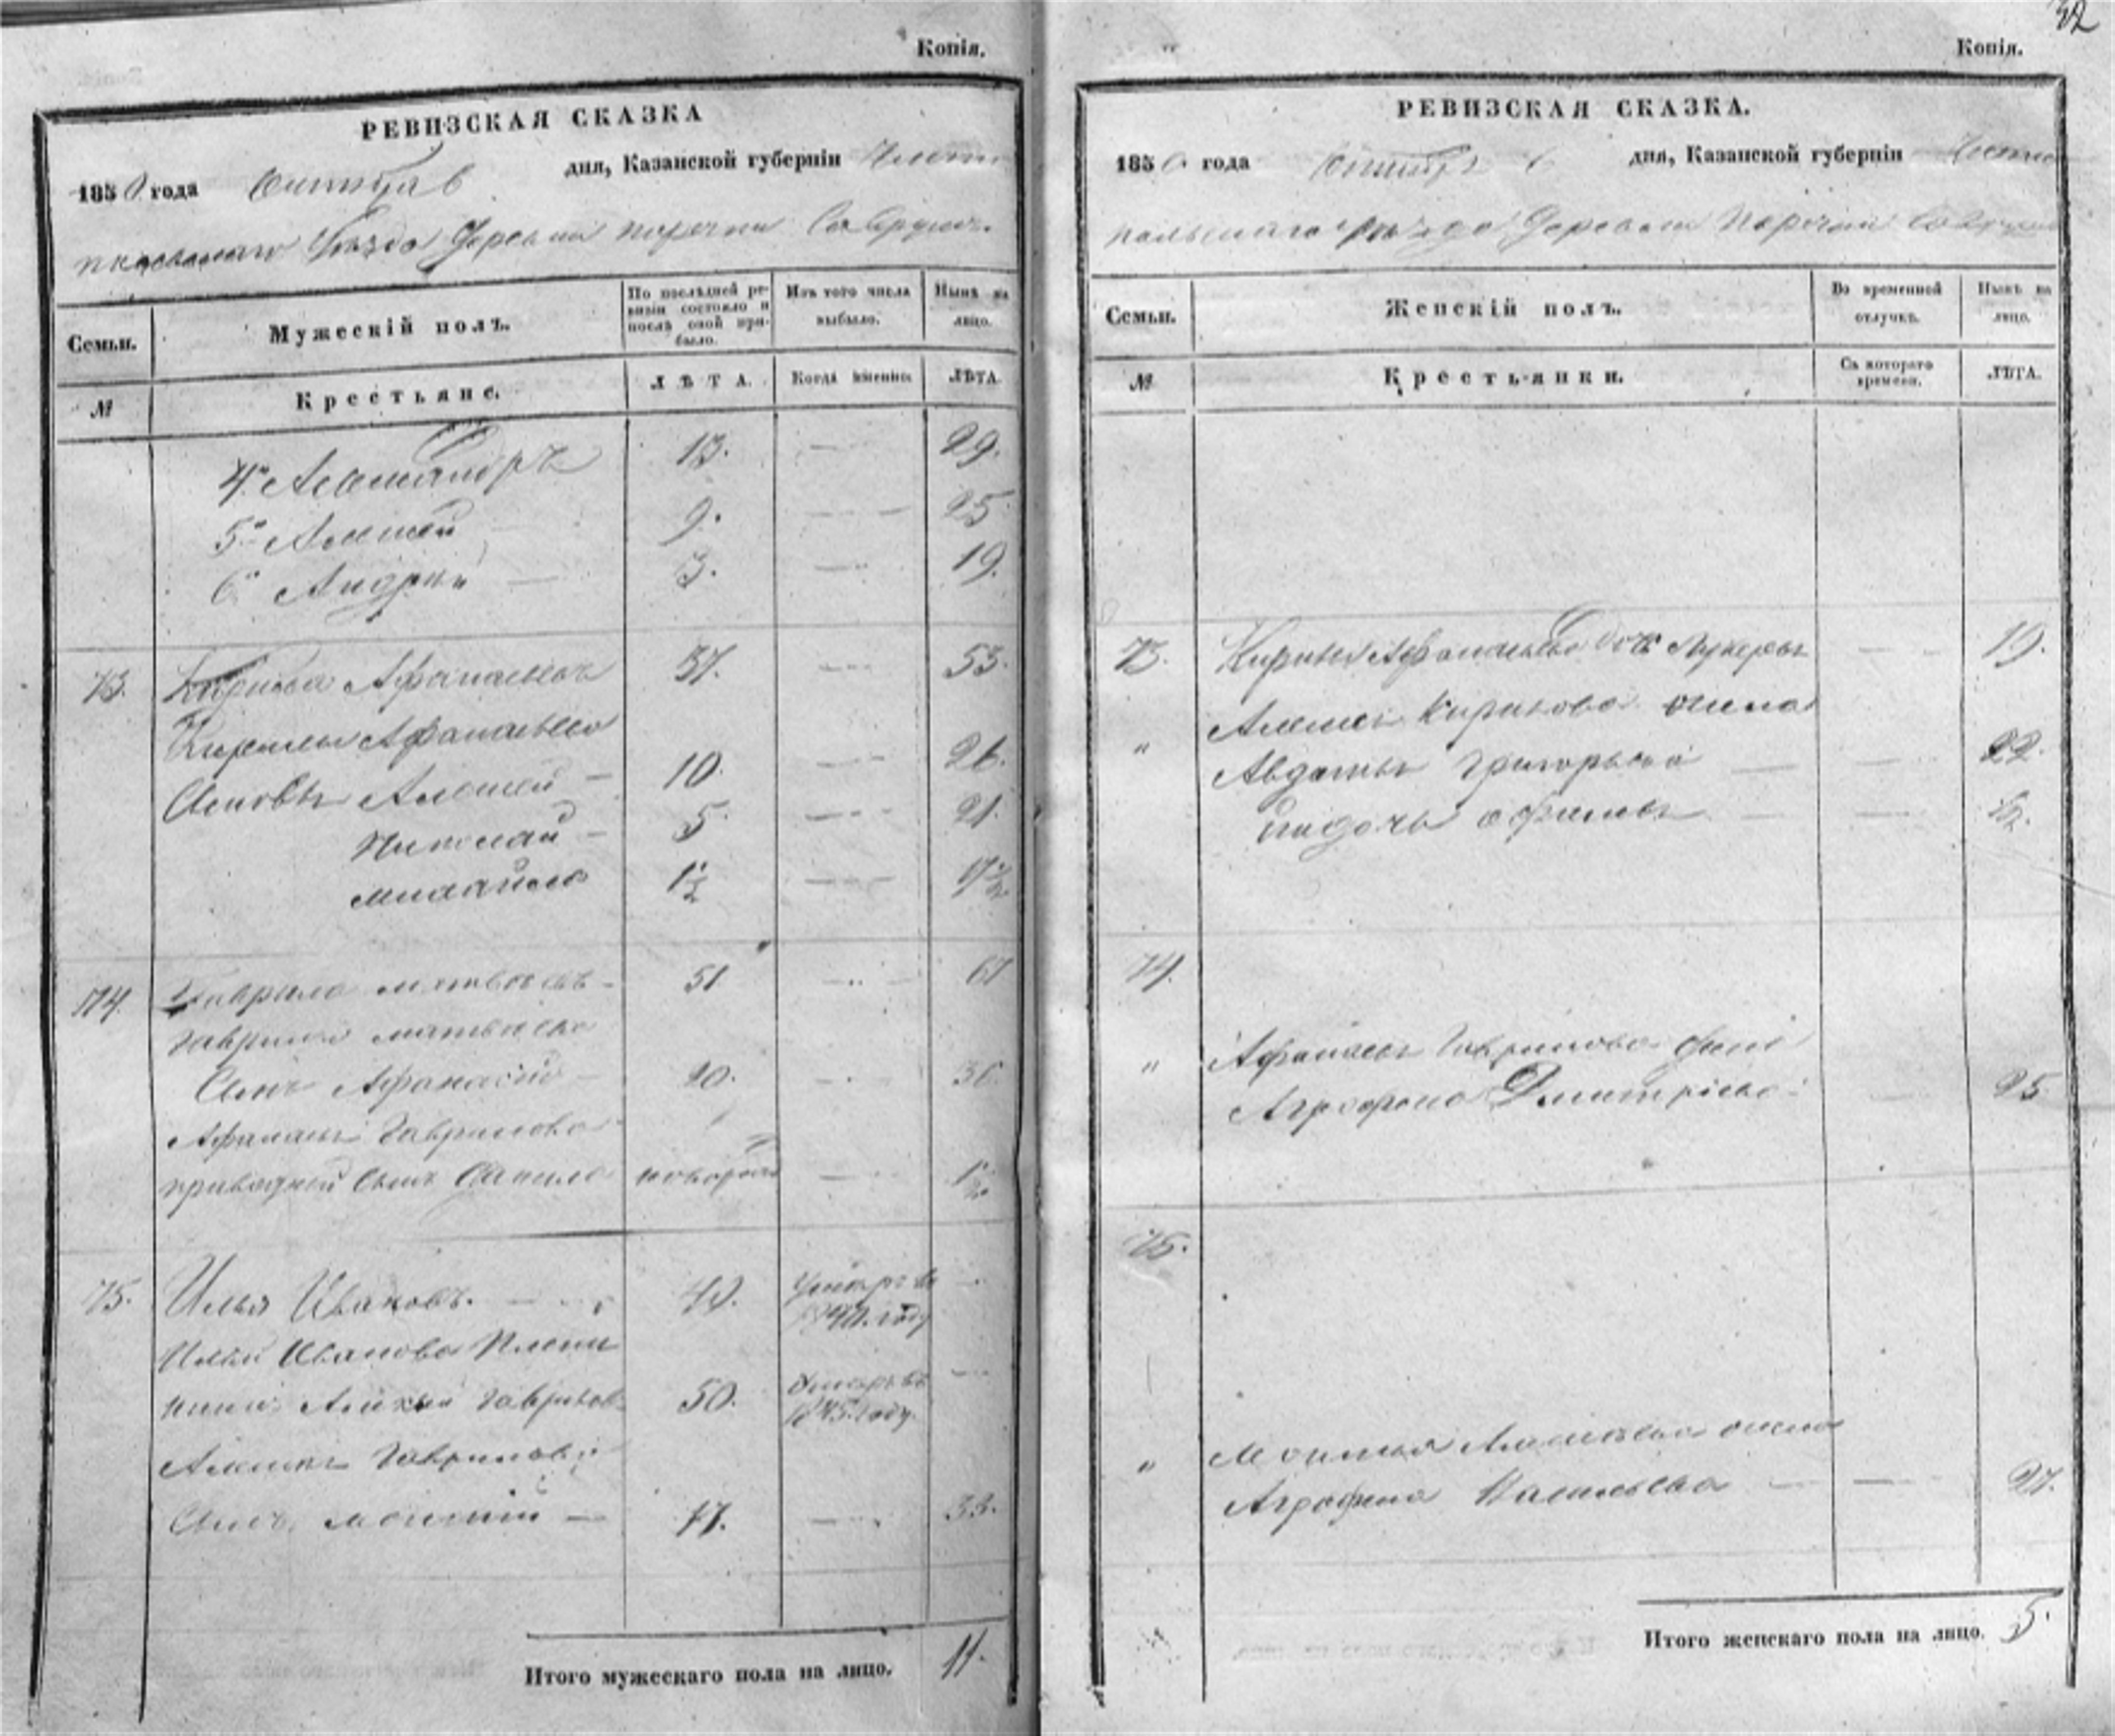 Копія.
РЕВИЗСКАЯ СКАЗКА
1850 года Октября 6 дня, Казанской губерніи Чисто
польскаго Уѣзда Деревни
Семьи.
Мужескій полъ.
По послѣдней ре-
визіи состояло и
послѣ оной при-
было.
Изъ того числа
выбыло.
Нынѣ на
лицо.
№
Крестьяне.
ЛѢТА.
Когда именно.
ЛѢТА.
4й Александръ 13. 29.
5й Алексей 9. 25.
6й Андрей 3. 19.
73. Афанасьевъ 37. 53.
Кирилы Афанасьева
Сыновья Алексей 10. 26.
Николай 5. 21.
Михайло 1½ 17½
74. Гаврило Матвеевъ 51 67
Гаврилы Матвеева
Сынъ Афанасій 20. 36.
Афанасья Гаврилова
сынъ новорож 1½
75. Илья Ивановъ. 44. Умеръ въ
году
Ильи Иванова Племян
никъ Алексей Гаврилов 50. Умеръ въ
1845 году.
Алексея Гаврилова
Сынъ 17. 33.
Итого мужескаго пола на лицо. 11.
32
Копія.
РЕВИЗСКАЯ СКАЗКА.
1850 года Октября 6 дня, Казанской губерніи Чисто
польскаго Уѣзда Деревни
Семьи.
Женскій полъ.
Во временной
отлучкѣ.
Нынѣ на
лицо.
№
Крестьянки.
Съ котораго
времени.
ЛѢТА.
73. Афанасьева дочь Лукерья 19.
" Алексея Кирилова жена
Авдотья Григорьева 22.
дочь ½.
74.
" Афанасья Гаврилова жена
Аграфена Дмитріева 25.
75.
" Алексеева жена
Аграфена Васильева 27.
Итого женскаго пола на лицо. 5.